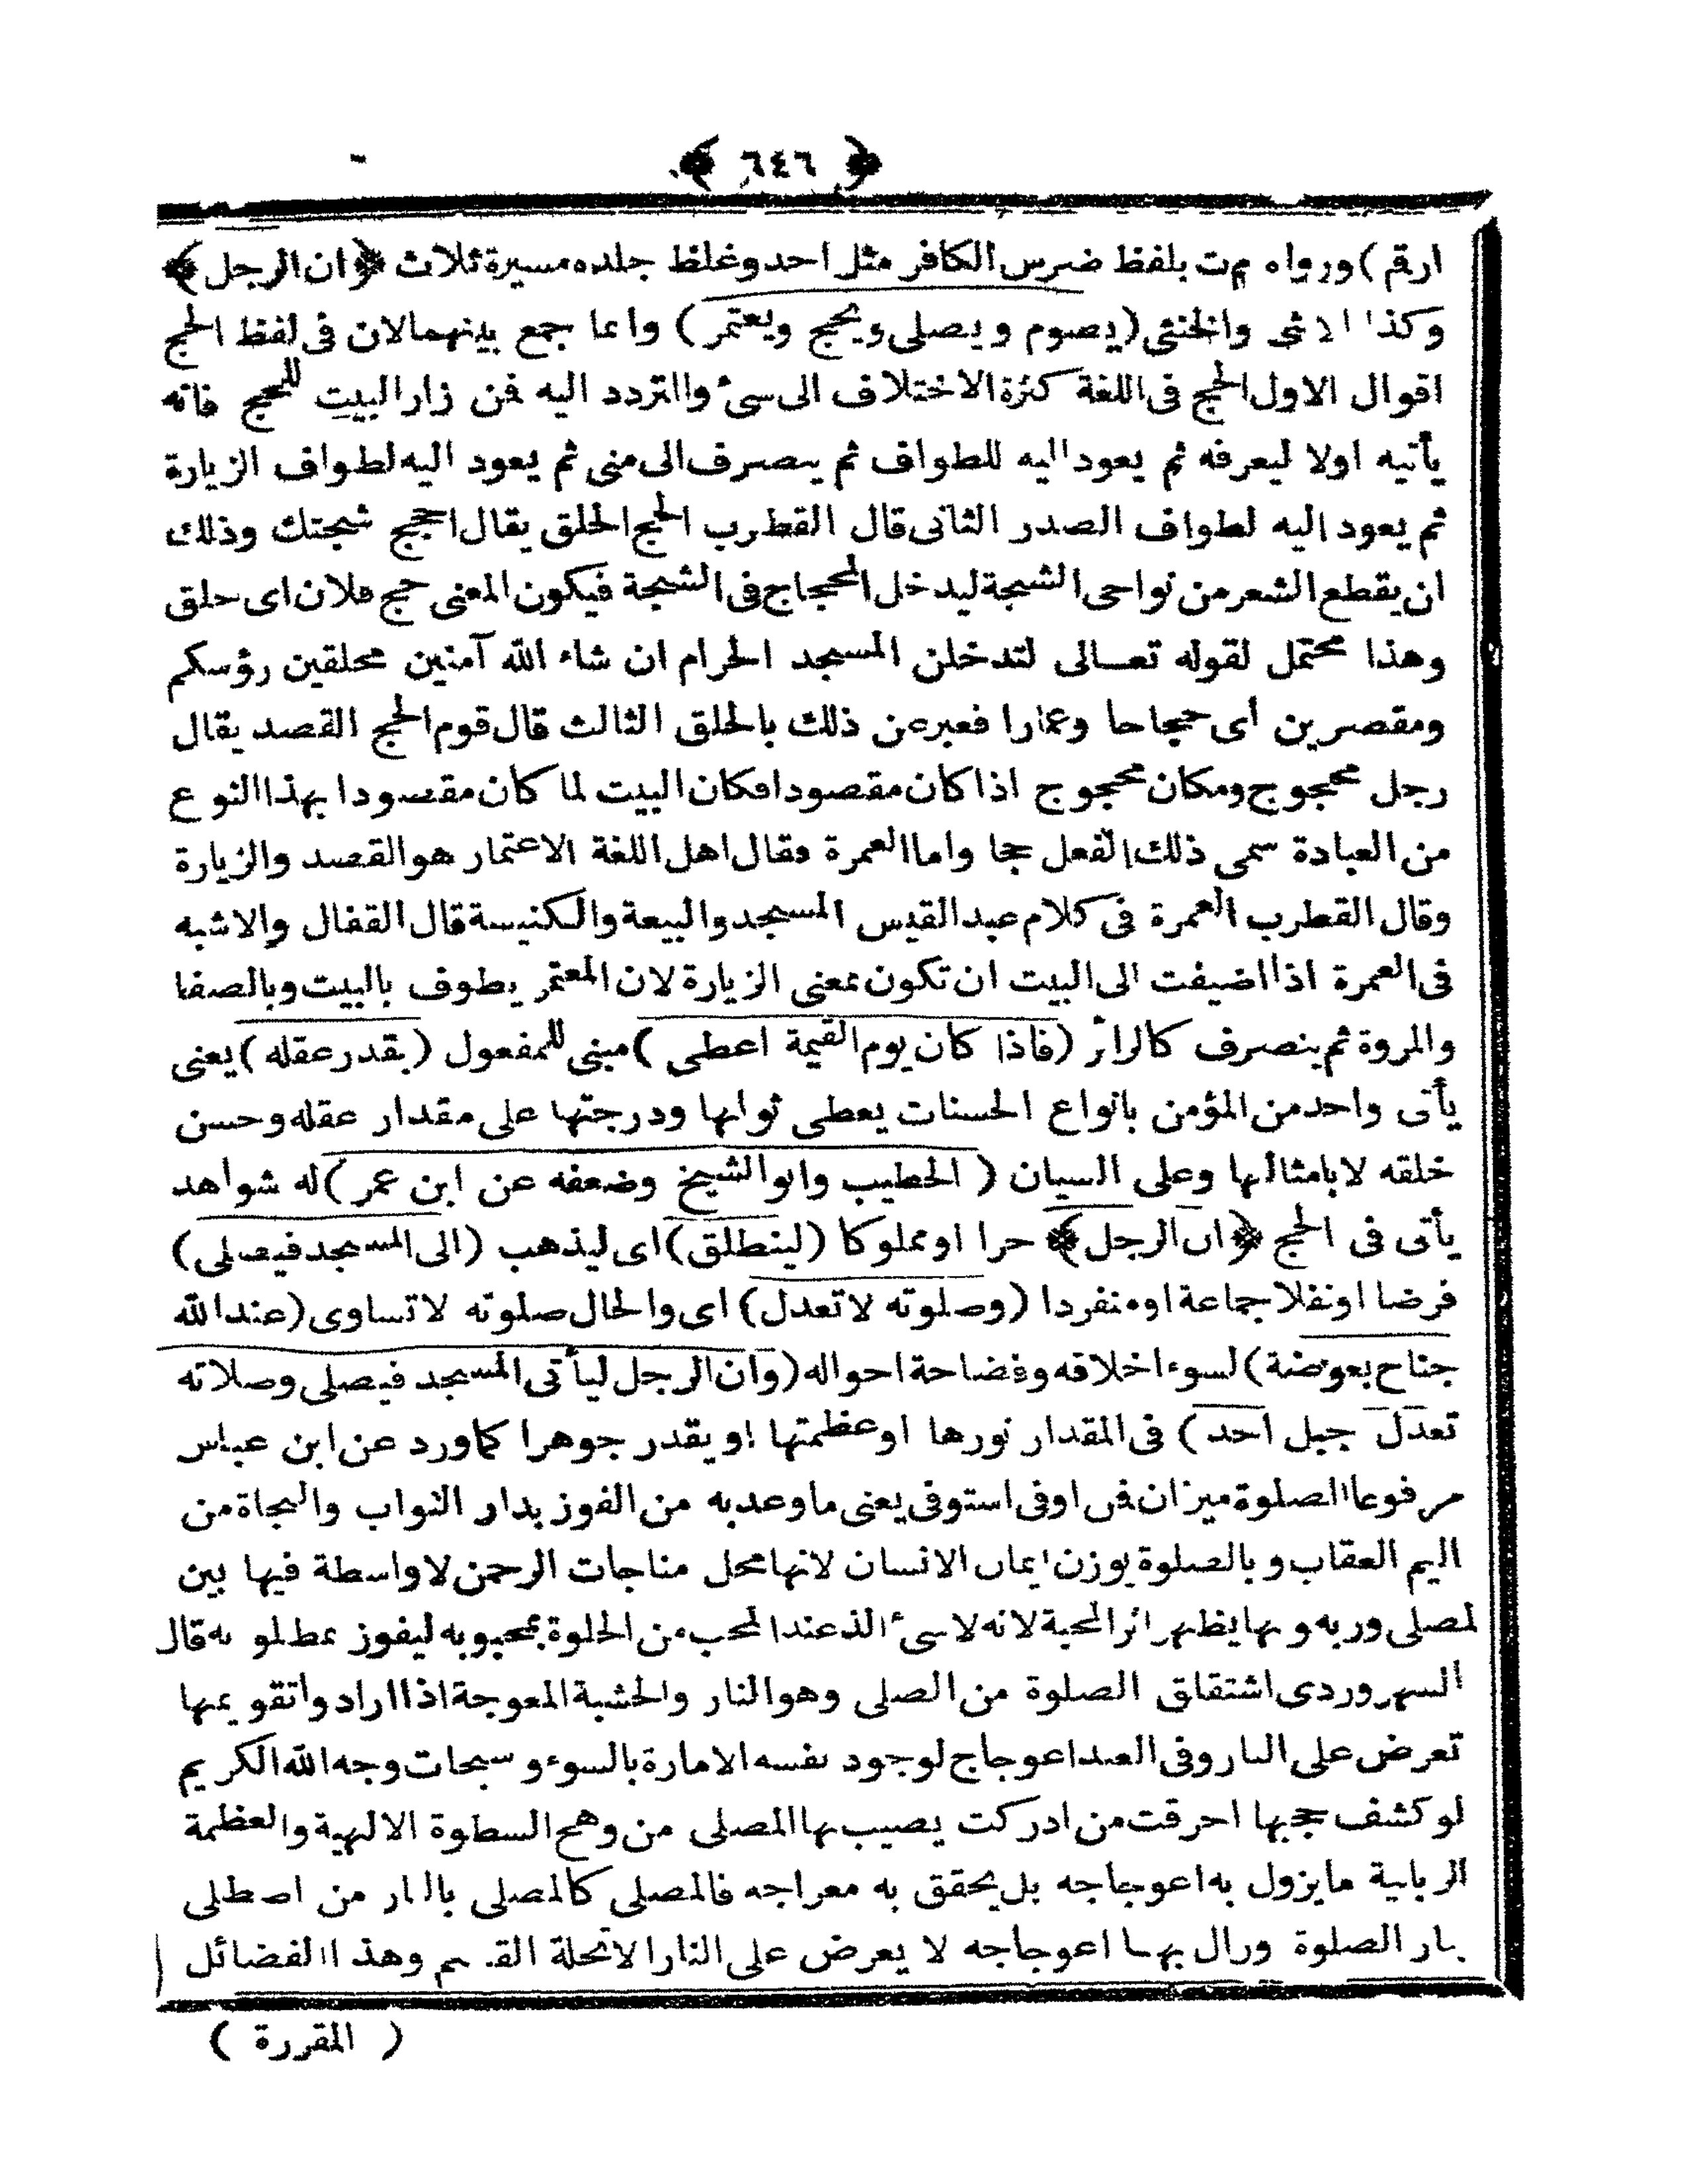 ﴿ ٦٤٦ ﴾
ارقم) ورواه م ت بلفظ ضرس الكافر مثل احد وغلظ جلده مسيرة ثلاث ﴿ ان الرجل ﴾
وكذا الانثى والخنثى (يصوم ويصلى ويحج ويعتمر) وانما جمع بينهما لان فى لفظ الحج
اقوال الاول الحج فى اللغة كثرة الاختلاف الى شئ والتردد اليه فمن زار البيت للحج فانه
يأتيه اولا ليعرفه ثم يعود اليه للطواف ثم ينصرف الى منى ثم يعود اليه لطواف الزيارة
ثم يعود اليه لطواف الصدر الثانى قال القطرب الحج الحلق يقال احجج شجتك وذلك
ان يقطع الشعر من نواحى الشجة ليدخل المحجاج فى الشجة فيكون المعنى حج فلان اى حلق
وهذا محتمل لقوله تعالى لتدخلن المسجد الحرام ان شاء الله آمنين محلقين رؤسكم
ومقصرين أى حجاجا وعمارا فعبر عن ذلك بالحلق الثالث قال قوم الحج القصد يقال
رجل محجوج ومكان محجوج اذا كان مقصودا فكان البيت لما كان مقصودا بهذا النوع
من العبادة سمى ذلك الفعل حجا واما العمرة فقال اهل اللغة الاعتمار هو القصد والزيارة
وقال القطرب العمرة فى كلام عبد القيس المسجد والبيعة والكنيسة قال القفال والاشبه
فى العمرة اذا اضيفت الى البيت ان تكون بمعنى الزيارة لان المعتمر يطوف بالبيت وبالصفا
والمروة ثم ينصرف كالزائر (فاذا كان يوم القيمة اعطى) مبنى للمفعول (بقدر عقله) يعنى
يأتى واحد من المؤمن بانواع الحسنات يعطى ثوابها ودرجتها على مقدار عقله وحسن
خلقه لا بامثالها وعلى السيان (الخطيب وابو الشيخ وضعفه عن ابن عمر) له شواهد
يأتى فى الحج ﴿ ان الرجل ﴾ حرا او مملوكا (لينطلق) اى ليذهب (الى المسجد فيصلى)
فرضا او نفلا جماعة او منفردا (وصلوته لا تعدل) اى والحال صلوته لا تساوى (عند الله
جناح بعوضة) لسوء اخلاقه وفضاحة احواله (وان الرجل ليأتى المسجد فيصلى وصلاته
تعدل جبل احد) فى المقدار نورها او عظمتها او يقدر جوهرا كما ورد عن ابن عباس
مرفوعا الصلوة ميزان فمن اوفى استوفى يعنى ما وعد به من الفوز بدار الثواب والنجاة من
اليم العقاب وبالصلوة يوزن ايمان الانسان لانها محل مناجات الرحمن لا واسطة فيها بين
لمصلى وربه وبها يظهر اثر المحبة لانه لا شئ الذ عند المحب من الخلوة بمحبوبه ليفوز بمطلوبه قال
السهروردى اشتقاق الصلوة من الصلى وهو النار والخشبة المعوجة اذا ارادوا تقويمها
تعرض على النار وفى العبد اعوجاج لوجود نفسه الامارة بالسوء وسبحات وجه الله الكريم
لو كشف حجبها احرقت من ادركت يصيب بها المصلى من وهج السطوة الالهية والعظمة
الربانية ما يزول به اعوجاجه بل يحقق به معراجه فالمصلى كالمصلى بالنار من اصطلى
بنار الصلوة وزال بها اعوجاجه لا يعرض على النار الا تحلة القسم وهذا الفضائل
( المقررة )